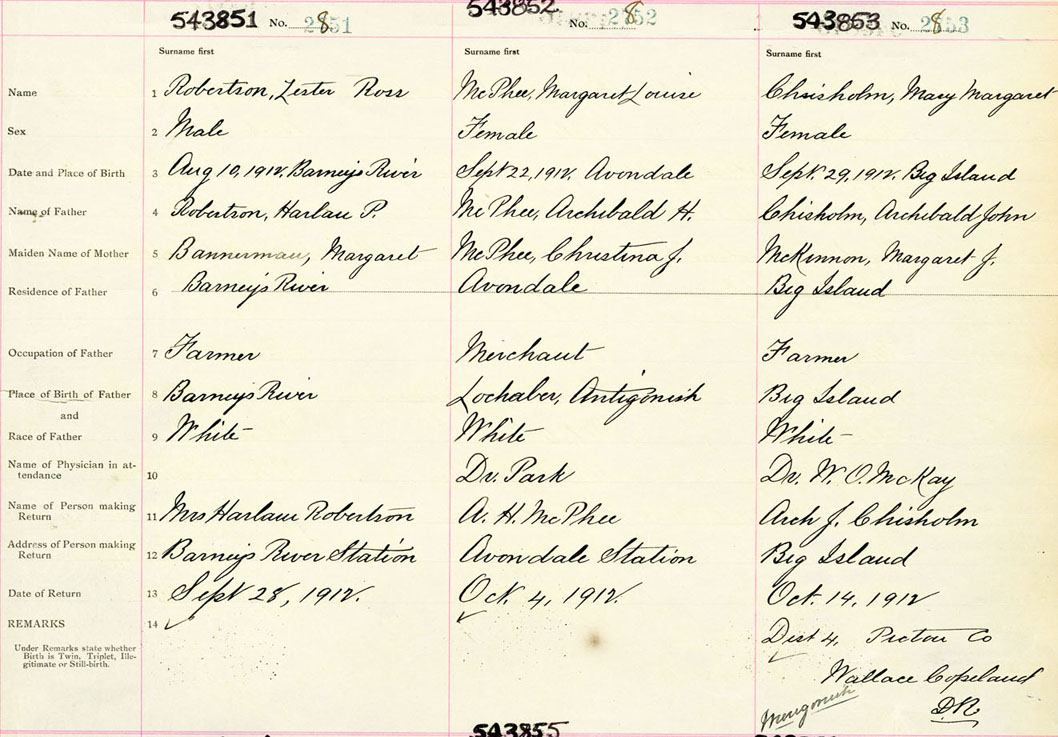 543851 No. 2851 543852 No. 2852 543853 No. 2853
Surname first Surname first Surname first
Name 1 Robertson, Lester Ross McPhee, Margaret Louise Chisholm, Mary Margaret
Sex 2 Male Female Female
Date and Place of Birth 3 Aug 10, 1912. Barneys River Sept 22, 1912, Avondale Sept. 29, 1912, Big Island
Name of Father 4 Robertson, Harlan P. McPhee, Archibald H. Chisholm, Archibald John
Maiden Name of Mother 5 Bannerman, Margaret McPhee, Christina J. McKinnon, Margaret J.
Residence of Father 6 Barney's River Avondale Big Island
Occupation of Father 7 Farmer Merchant Farmer
Place of Birth of Father 8 Barneys River Lochaber, Antigonish Big Island
and
Race of Father 9 White White White
Name of Physician in at-
tendance 10 Dr. Park Dr. W. O. McKay
Name of Person making
Return 11 Mrs Harlan Robertson A. H. McPhee Arch J. Chisholm
Address of Person making
Return 12 Barneys River Station Avondale Station Big Island
Date of Return 13 Sept 28, 1912. Oct. 4, 1912. Oct. 14, 1912
REMARKS 14
Dist 4, Pictou Co
Under Remarks state whether
Birth is Twin, Triplet, Ille-
gitimate or Still-birth.
Wallace Copeland
D.R.
543855